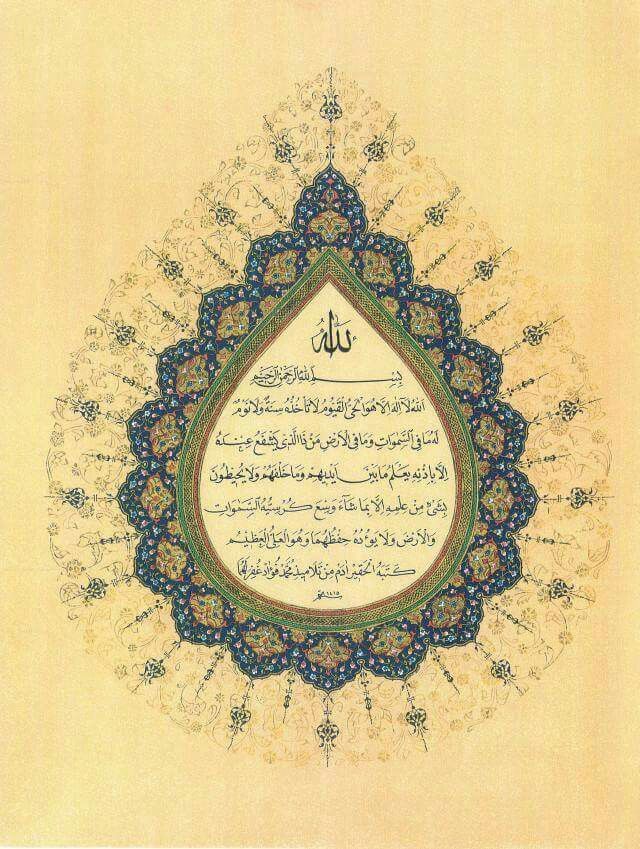 الله
بِسْمِ اللهِ الرَّحْمٰنِ الرَّحِيمِ
اَللهُ لَا اِلٰهَ اِلَّا هُوَ الْحَيُّ الْقَيُّومُ لَا تَأْخُذُهُ سِنَةٌ وَلَا نَوْمٌ
لَهُ مَا فِي السَّمٰوَاتِ وَمَا فِي الْاَرْضِ مَنْ ذَا الَّذِي يَشْفَعُ عِنْدَهُ
اِلَّا بِاِذْنِهِ يَعْلَمُ مَا بَيْنَ اَيْدِيهِمْ وَمَا خَلْفَهُمْ وَلَا يُحِيطُونَ
بِشَيْءٍ مِنْ عِلْمِهِ اِلَّا بِمَا شَاءَ وَسِعَ كُرْسِيُّهُ السَّمٰوَاتِ
وَالْاَرْضَ وَلَا يَؤُدُهُ حِفْظُهُمَا وَهُوَ الْعَلِيُّ الْعَظِيمُ
كتبه الحقير ادم من تلاميذ محمد فؤاد غفر لهما
١٤١٥